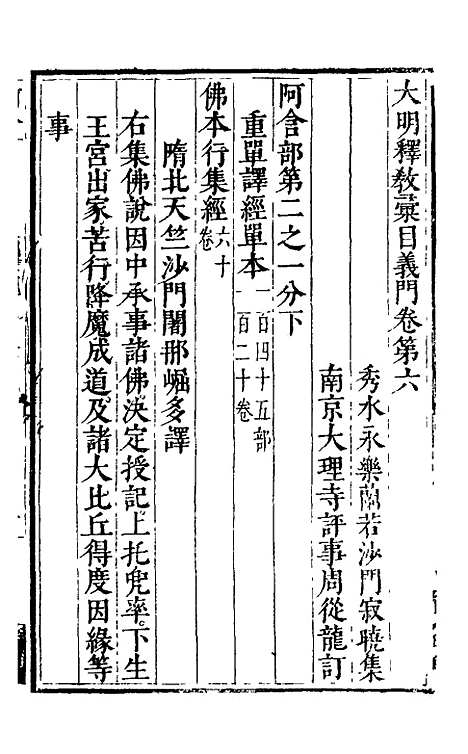 大明釋教彚目義門卷第六
秀水永樂蘭若沙門寂曉集
南京大理寺評事周從龍訂
阿含部第二之一分下
重單譯經單本一百四十五部一百二十卷
佛本行集經六十卷
隋北天竺沙門闍那崛多譯
右集佛說因中承事諸佛決定授記上托兜率下生
王宮出家苦行降魔成道及諸大比丘得度因緣等
事